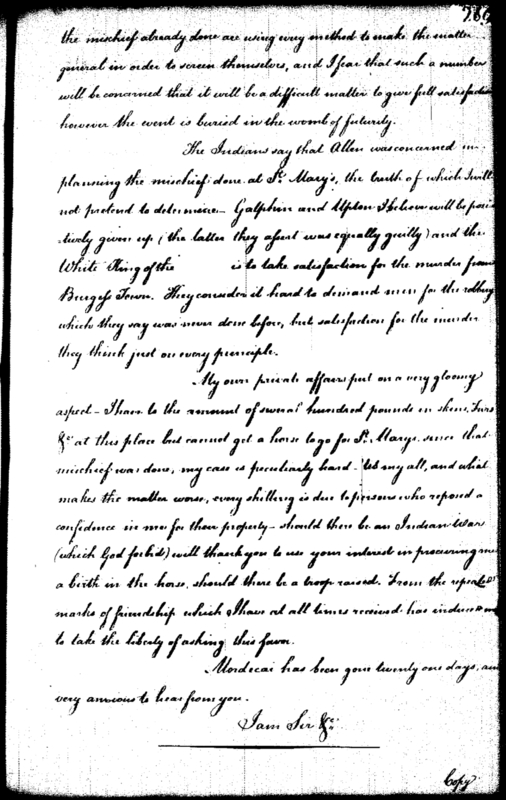 286
the mischief already done are using every method to make the matter
general in order to screen themselves, and I fear that such a number
will be concerned that it will be a difficult matter to give full satisfaction
however the event is buried in the womb of futurity.
The Indians say that Allen was concerned in
planning the mischief done at St. Mary's, the truth of which I will
not pretend to determine - Galphin and Upton I believe will be posi
tively given up (the latter they assert was equally guilty) and the
White King of the is to take satisfaction for the murder from
Burgess Town. They consider it hard to demand men for the robbery
which they say was never done before, but satisfaction for the murder
they think just on every principle.
My own private affairs put on a very gloomy
aspect - I have to the amount of several hundred pounds in skins, Furs
&c at this place but cannot get a horse to go for St. Marys since that
mischief was done, my case is peculiarly hard - tis my all, and what
makes the matter worse, every shilling is due to persons who reposed a
confidence in me for their property - should there be an Indian War
(which God forbid) will thank you to use your interest in procuring me
a birth in the horse, should there be a troop raised. From the repeated
marks of friendship which I have at all times received has induced me
to take the liberty of asking this favor.
Mordecai has been gone twenty one days, am
very anxious to hear from you.
I am Sir &c
Copy